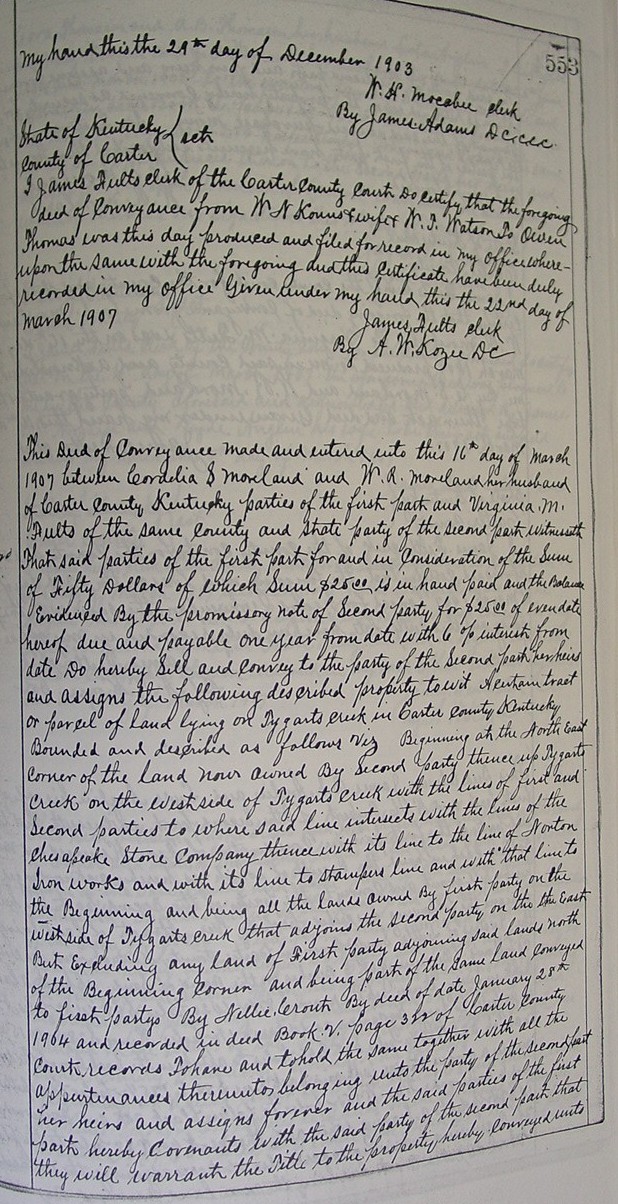 553
My hand this the 29th day of December 1903
W. H. Mocabee clerk
By James Adams D.C.C.C.C.
State of Kentucky
County of Carter } sct
I James Fults clerk of the Carter County Court Do certify that the foregoing
deed of Conveyance from W N Kouns & wife & W. T. Watson To Owen
Thomas was this day produced and filed for record in my office where-
upon the same with the foregoing and this certificate have been duly
recorded in my Office Given under my hand this the 22nd day of
March 1907
James Fults clerk
By A. W. Kozee DC
This Deed of Conveyance made and entered into this 16th day of March
1907 between Cordelia S Moreland and W. R. Moreland her husband
of Carter County, Kentucky parties of the first part and Virginia M.
Fults of the same County and State party of the second part witnesseth
That said parties of the first part for and in Consideration of the Sum
of Fifty Dollars of which Sum $25.00 is in hand paid and the Balance
Evidenced By the promissory note of Second party for $25.00 of even date
hereof due and payable one year from date with 6 % interest from
date Do hereby Sell and Convey to the party of the Second part her heirs
and assigns the following described property to wit A certain tract
or parcel of land lying on Tygarts creek in Carter County Kentucky
Bounded and described as follows Viz Beginning at the North East
corner of the land now owned By Second party thence up Tygarts
Creek on the westside of Tygarts Creek with the lines of first and
Second parties to where said line intersects with the lines of the
Chesapeake Stone Company thence with its line to the line of Norton
Iron works and with its line to Stampers line and with that line to
the Beginning and being all the lands owned By first party on the
westside of Tygarts creek that adjoins the second party on the the East
But Excluding any land of First party adjoining said lands north
of the Beginning Corner and being part of the same land conveyed
to first partys By Nellie Crouth By deed of date January 28th
1904 and recorded in deed Book V. page 322 of Carter County
Court records To have and to hold the same together with all the
appurtinances thereunto belonging unto the party of the second part
her heirs and assigns forever and the said parties of the first
part hereby Covenants with the said party of the second part that
they will warrant the Title to the property hereby conveyed unto